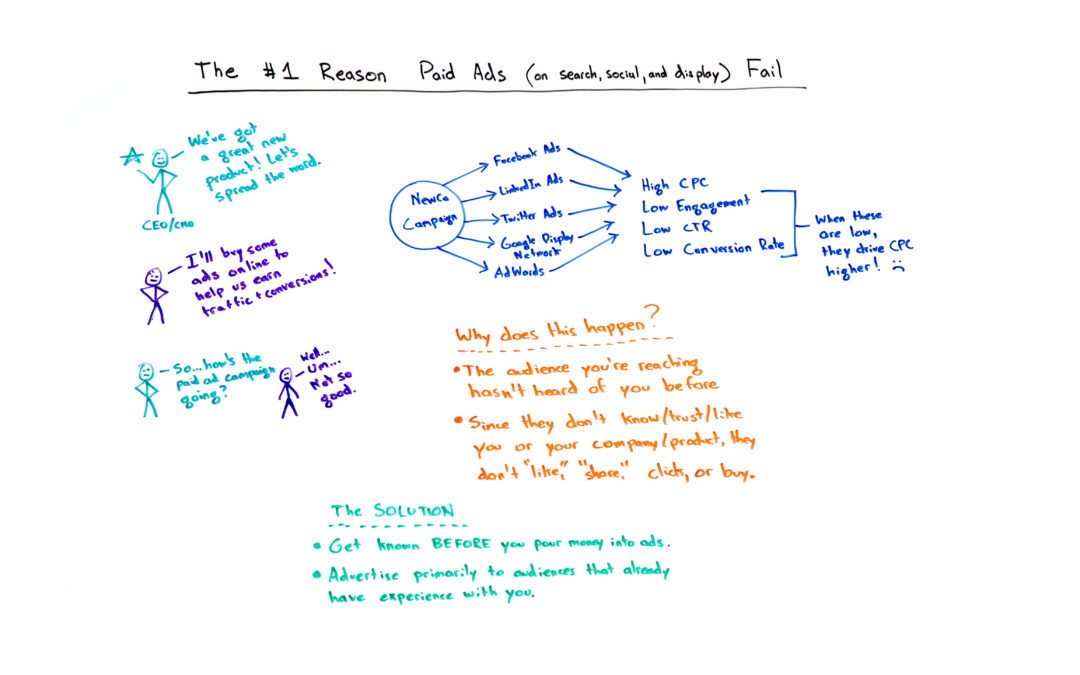 The #1 Reason Paid Ads (on search, social, and display) Fail
We've got
a great new
product! Let's
spread the word.
CEO/CMO
I'll buy some
ads online to
help us earn
traffic + conversions!
So...how's the
paid ad campaign
going?
Well...
Um...
Not so
good.
NewCo
Campaign
Facebook Ads
LinkedIn Ads
Twitter Ads
Google Display
Network
AdWords
High CPC
Low Engagement
Low CTR
Low Conversion Rate
When these
are low,
they drive CPC
higher!
Why does this happen?
• The audience you're reaching
hasn't heard of you before
• Since they don't know/trust/like
you or your company/product, they
don't "like," "share," click, or buy.
The SOLUTION
• Get known BEFORE you pour money into ads.
• Advertise primarily to audiences that already
have experience with you.